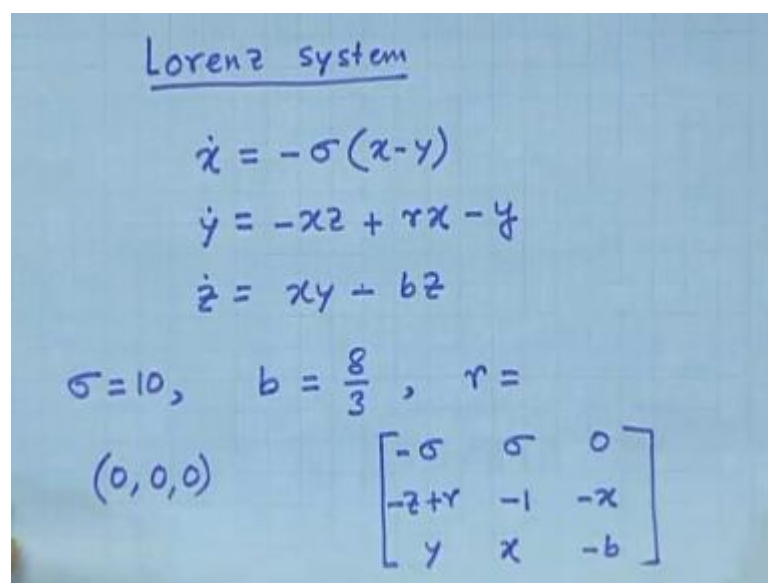 Lorenz system
ẋ = -σ(x-y)
ẏ = -xz + rx - y
ż = xy - bz
σ=10, b = 8/3, r =
(0,0,0)
[-σ σ 0
-z+r -1 -x
y x -b]